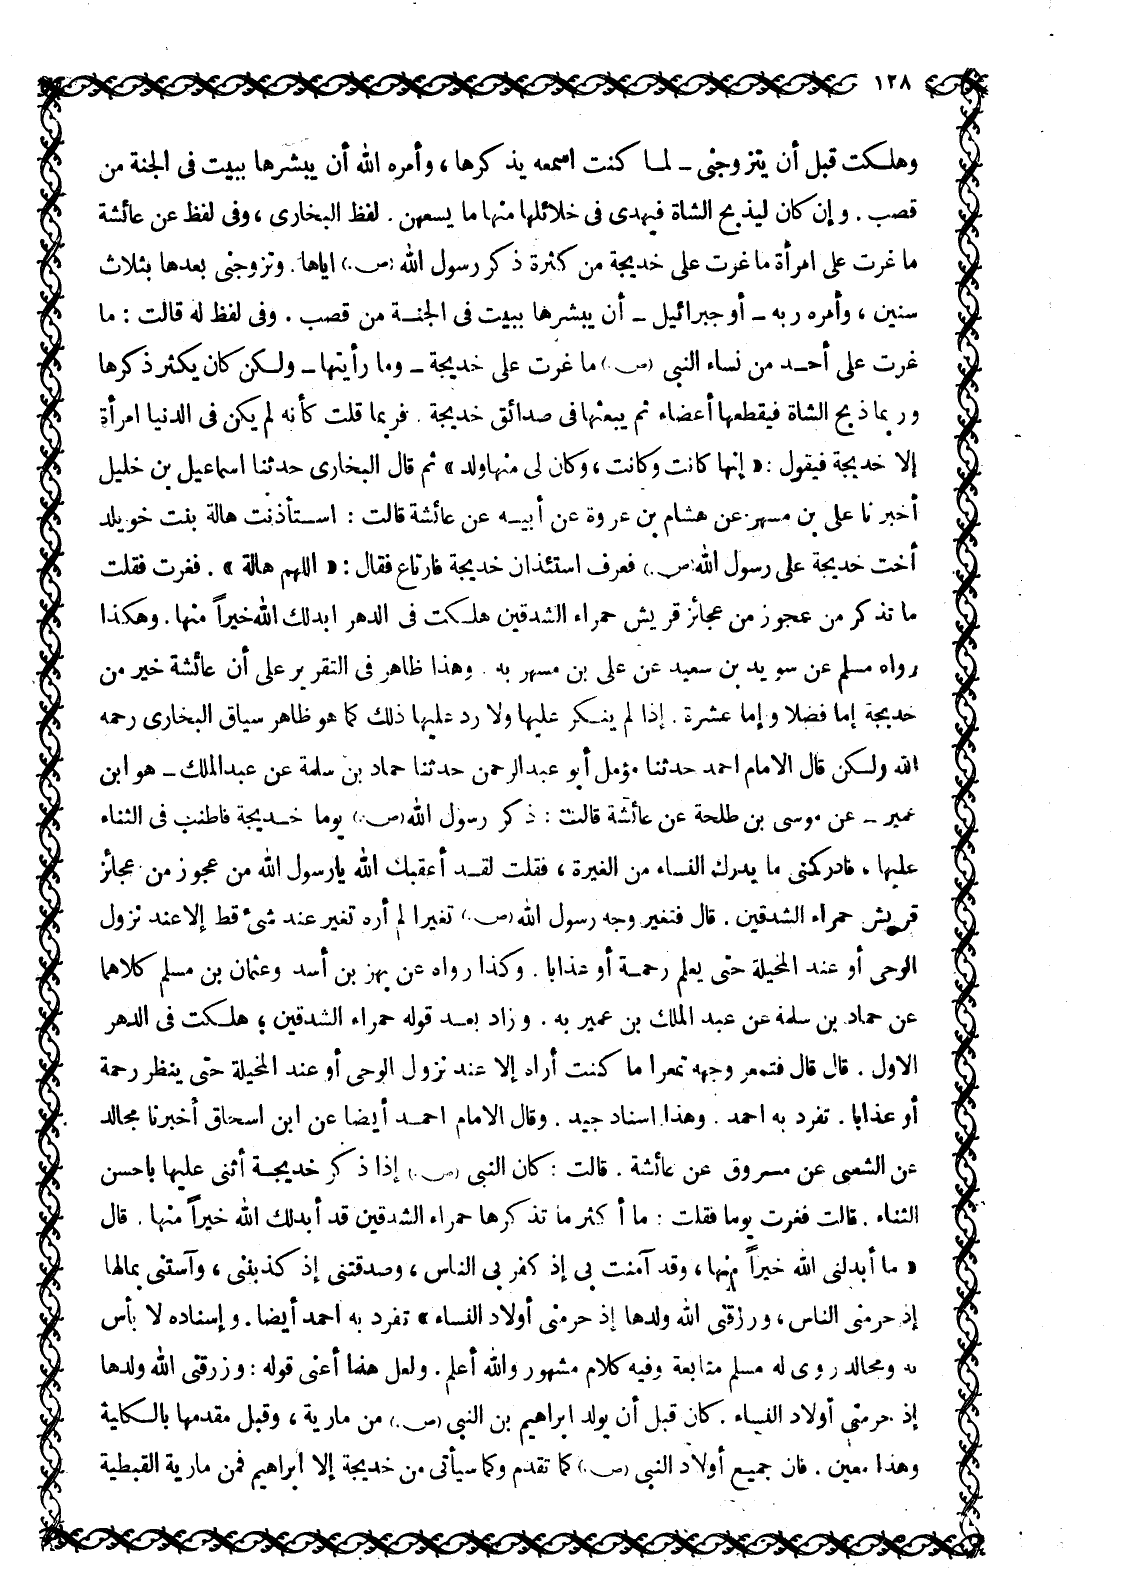 ١٢٨
وهلكت قبل أن يتزوجنى ـ لما كنت اسمعه يذكرها ، وأمره الله أن يبشرها ببيت فى الجنة من
قصب . وإن كان ليذبح الشاة فيهدى فى خلائلها منها ما يسعهن . لفظ البخارى ، وفى لفظ عن عائشة
ما غرت على امرأة ما غرت على خديجة من كثرة ذكر رسول الله (ص.) اياها . وتزوجنى بعدها بثلاث
سنين ، وأمره ربه ـ أو جبرائيل ـ أن يبشرها ببيت فى الجنة من قصب . وفى لفظ له قالت : ما
غرت على أحد من نساء النبى (ص.) ما غرت على خديجة ـ وما رأيتها ـ ولكن كان يكثر ذكرها
وربما ذبح الشاة فيقطعها أعضاء ثم يبعثها فى صدائق خديجة . فربما قلت كأنه لم يكن فى الدنيا امرأة
إلا خديجة فيقول : « إنها كانت وكانت ، وكان لى منها ولد » ثم قال البخارى حدثنا اسماعيل بن خليل
أخبرنا على بن مسهر عن هشام بن عروة عن أبيه عن عائشة قالت : استأذنت هالة بنت خويلد
أخت خديجة على رسول الله (ص.) فعرف استئذان خديجة فارتاع فقال : « اللهم هالة » . فغرت فقلت
ما تذكر من عجوز من عجائز قريش حمراء الشدقين هلكت فى الدهر ابدلك الله خيراً منها . وهكذا
رواه مسلم عن سويد بن سعيد عن على بن مسهر به . وهذا ظاهر فى التقرير على أن عائشة خير من
خديجة إما فضلا وإما عشرة . إذا لم ينكر عليها ولا رد عليها ذلك كما هو ظاهر سياق البخارى رحمه
الله ولكن قال الامام احمد حدثنا مؤمل أبو عبدالرحمن حدثنا حماد بن سلمة عن عبدالملك ـ هو ابن
عمير ـ عن موسى بن طلحة عن عائشة قالت : ذكر رسول الله (ص.) يوما خديجة فاطنب فى الثناء
عليها ، فادركنى ما يدرك النساء من الغيرة ، فقلت لقد أعقبك الله يارسول الله من عجوز من عجائز
قريش حمراء الشدقين . قال فتغير وجه رسول الله (ص.) تغيرا لم أره تغير عند شئ قط إلا عند نزول
الوحى أو عند المخيلة حتى يعلم رحمة أو عذابا . وكذا رواه عن بهز بن أسد وعثمان بن مسلم كلاهما
عن حماد بن سلمة عن عبد الملك بن عمير به . وزاد بعد قوله حمراء الشدقين ، هلكت فى الدهر
الاول . قال قال فتمعر وجهه تمعرا ما كنت أراه إلا عند نزول الوحى أو عند المخيلة حتى ينظر رحمة
أو عذابا . تفرد به احمد . وهذا اسناد جيد . وقال الامام احمد أيضا عن ابن اسحاق أخبرنا مجالد
عن الشعبى عن مسروق عن عائشة . قالت : كان النبى (ص.) إذا ذكر خديجة أثنى عليها باحسن
الثناء . قالت فغرت يوما فقلت : ما أكثر ما تذكرها حمراء الشدقين قد أبدلك الله خيراً منها . قال
« ما أبدلنى الله خيراً منها ، وقد آمنت بى إذ كفر بى الناس ، وصدقتنى إذ كذبنى ، وآستنى بمالها
إذ حرمنى الناس ، ورزقنى الله ولدها إذ حرمنى أولاد النساء » تفرد به احمد أيضا . وإسناده لا بأس
به ومجالد روى له مسلم متابعة وفيه كلام مشهور والله أعلم . ولعل هذا أعنى قوله : ورزقنى الله ولدها
إذ حرمنى أولاد النساء . كان قبل أن يولد ابراهيم بن النبى (ص.) من مارية ، وقبل مقدمها بالكلية
وهذا معين . فان جميع أولاد النبى (ص.) كما تقدم وكما سيأتى من خديجة إلا ابراهيم فمن مارية القبطية